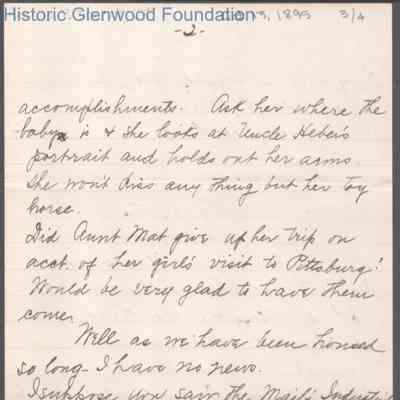 Historic Glenwood Foundation
13, 1895 3/4
-2-
accomplishments. Ask her where the
baby is & she looks at Uncle Heber's
portrait and holds out her arms.
She won't kiss any thing but her toy
horse.
Did Aunt Mat give up her trip on
acct. of her girls' visit to Pittsburg?
Would be very glad to have them
come.
Well as we have been housed
so long- I have no news.
I suppose you saw the Mail's Industrial